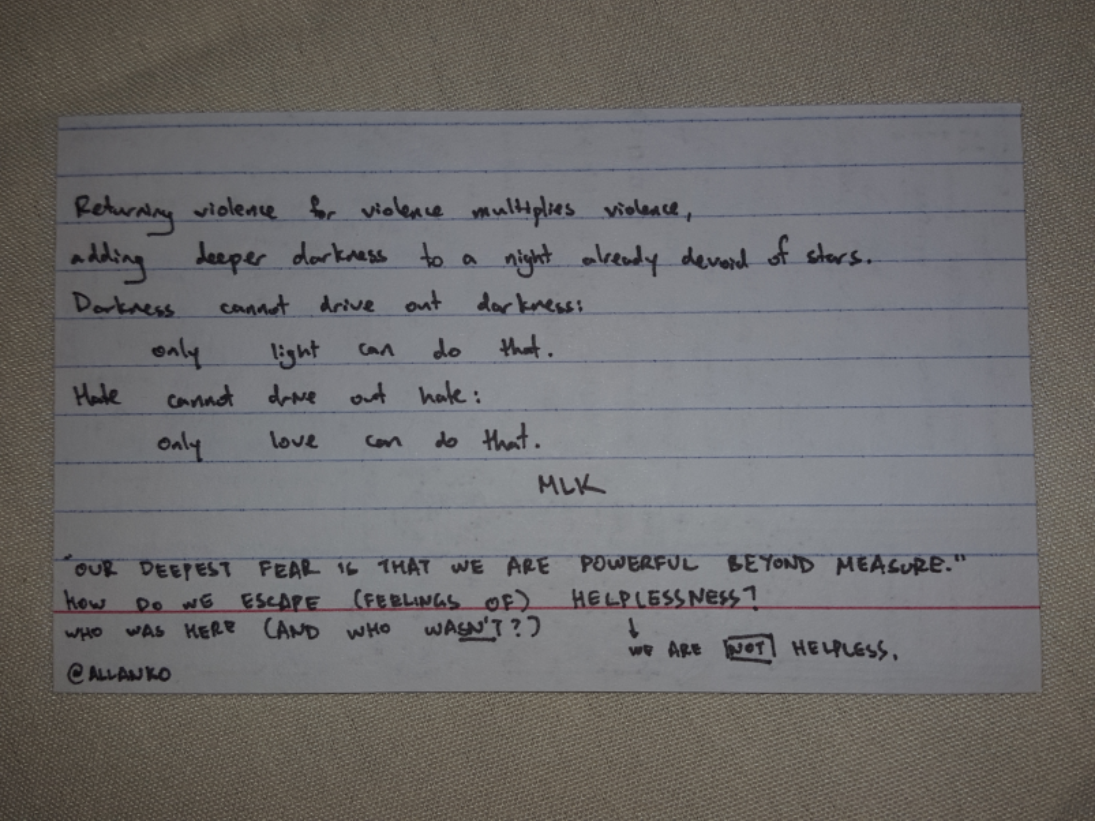 Returning violence for violence multiplies violence,
adding deeper darkness to a night already devoid of stars.
Darkness cannot drive out darkness:
only light can do that.
Hate cannot drive out hate:
only love can do that.
MLK
"OUR DEEPEST FEAR IS THAT WE ARE POWERFUL BEYOND MEASURE."
HOW DO WE ESCAPE (FEELINGS OF) HELPLESSNESS?
WHO WAS HERE (AND WHO WASN'T?)
↓
WE ARE NOT HELPLESS.
@ALLANKO